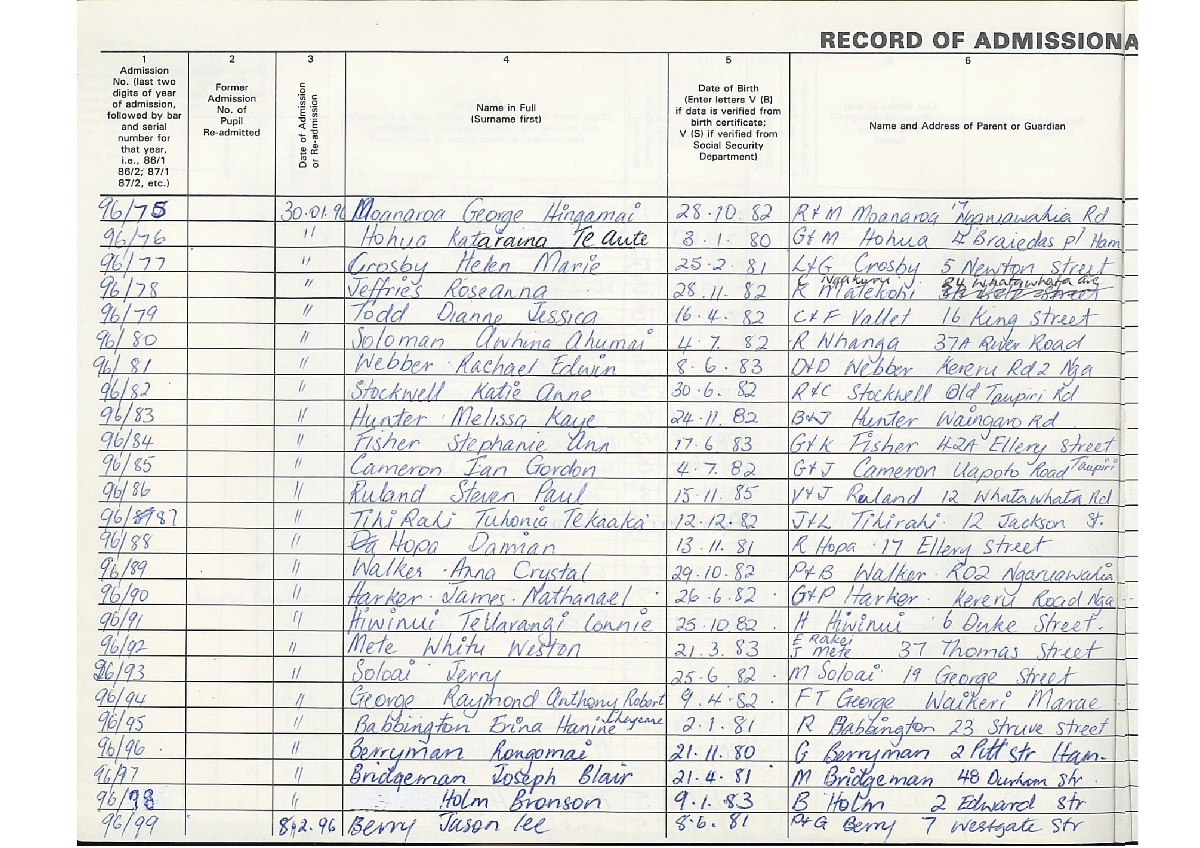 RECORD OF ADMISSIONA
1 2 3 4 5 6
Admission No. (last two digits of year of admission, followed by bar and serial number for that year, i.e., 86/1 86/2; 87/1 87/2, etc.)
Former Admission No. of Pupil Re-admitted
Date of Admission or Re-admission
Name in Full (Surname first)
Date of Birth (Enter letters V (B) if data is verified from birth certificate; V (S) if verified from Social Security Department)
Name and Address of Parent or Guardian
96/75 30.01.96 Moanaroa George Hingamai 28.10.82 R&M Moanaroa 17 Ngaruawahia Rd
96/76 " Hohua Kataraina Te Aute 3.1.80 G&M Hohua Braiedas pl Ham
96/77 " Crosby Helen Marie 25.2.81 L&G Crosby 5 Newton Street
96/78 " Jeffries Roseanna 28.11.82 C Ngakuru R Matekohi 24 Whatawhata ave
96/79 " Todd Dianne Jessica 16.4.82 C&F Vallet 16 King Street
96/80 " Soloman Awhina Ahumai 4.7.82 R Whanga 37A River Road
96/81 " Webber Rachael Edwin 8.6.83 D&D Webber Kereru Rd 2 Nga
96/82 " Stockwell Katie Anne 30.6.82 R&C Stockwell Old Taupiri Rd
96/83 " Hunter Melissa Kaye 24.11.82 B&J Hunter Waingaro Rd
96/84 " Fisher Stephanie Ann 17.6.83 G&K Fisher 42A Ellery Street
96/85 " Cameron Ian Gordon 4.7.82 G&J Cameron Uapoto Road Taupiri
96/86 " Ruland Steven Paul 15.11.85 V&J Ruland 12 Whatawhata Rd
96/87 " TihiRahi Tuhonia Tekaaka 12.12.82 J&L Tihirahi 12 Jackson St.
96/88 " Hopa Damian 13.11.81 R Hopa 17 Ellery Street
96/89 " Walker Anna Crystal 29.10.82 P&B Walker RD2 Ngaruawahia
96/90 " Harker James Nathanael 26.6.82 G&P Harker Kereru Road Nga
96/91 " Hiwinui TeUarangi Lonnie 25.10.82 H Hiwinui 6 Duke Street.
96/92 " Mete Whitu Weston 21.3.83 E Rakei J Mete 37 Thomas Street
96/93 " Soloai Jerry 25.6.82 M Soloai 19 George Street
96/94 " George Raymond Anthony Robert 9.4.82 F T George Waikeri Marae
96/95 " Babbington Erina Hanine Cheyenne 2.1.81 R Babbington 23 Struve Street
96/96 " Berryman Rongomai 21.11.80 G Berryman 2 Pitt Str Ham.
96/97 " Bridgeman Joseph Blair 21.4.81 M Bridgeman 48 Durham Str
96/98 " Holm Bronson 9.1.83 B Holm 2 Edward Str
96/99 8.2.96 Berry Jason lee 8.6.81 P&G Berry 7 Westgate Str